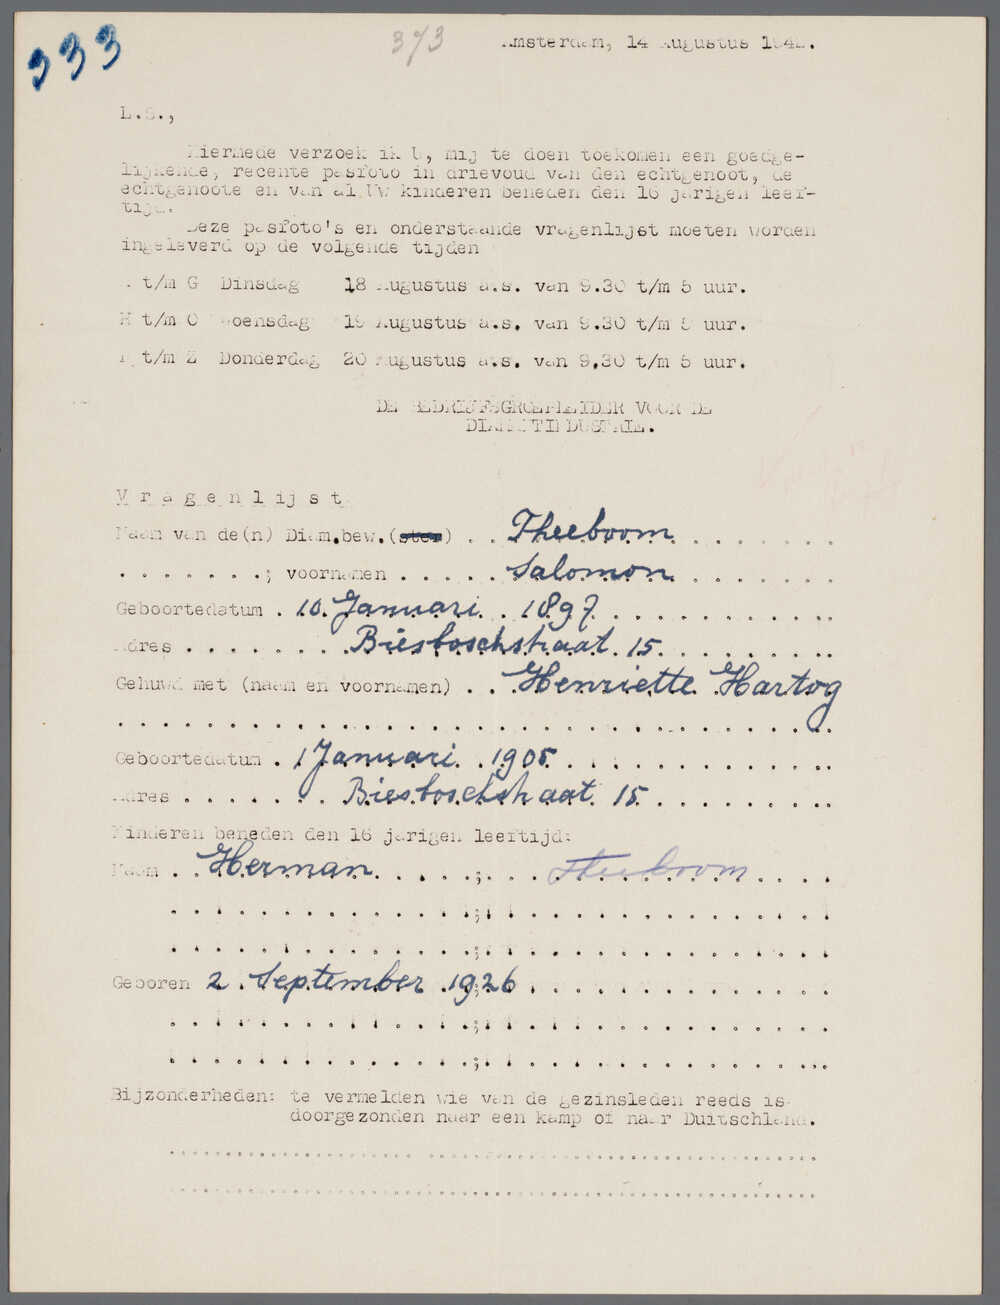 333
373
Amsterdam, 14 Augustus 1942.
L.S.,
Hiermede verzoek ik U, mij te doen toekomen een goedge-
lijkende, recente pasfoto in drievoud van den echtgenoot, de
echtgenoote en van al Uw kinderen beneden den 16 jarigen leef-
tijd.
Deze pasfoto's en onderstaande vragenlijst moeten worden
ingeleverd op de volgende tijden
A t/m G Dinsdag 18 Augustus a.s. van 9.30 t/m 5 uur.
H t/m O Woensdag 19 Augustus a.s. van 9.30 t/m 5 uur.
P t/m Z Donderdag 20 Augustus a.s. van 9.30 t/m 5 uur.
DE BEDRIJFSGROEPLEIDER VOOR DE
DIAMANTINDUSTRIE.
Vragenlijst
Naam van de(n) Diam.bew.(ster) . . Theeboom
. . . . . . . ; voornamen . . . . . Salomon
Geboortedatum . 10 Januari 1897
Adres . . . . . . . Biesboschstraat 15
Gehuwd met (naam en voornamen) . . Henriette Hartog
Geboortedatum . 1 Januari 1905
Adres . . . . . . . Biesboschstraat 15
Kinderen beneden den 16 jarigen leeftijd:
Naam . . Herman . . . . . ; . . . Theeboom
Geboren 2 September 1926
Bijzonderheden: te vermelden wie van de gezinsleden reeds is
doorgezonden naar een kamp of naar Duitschland.